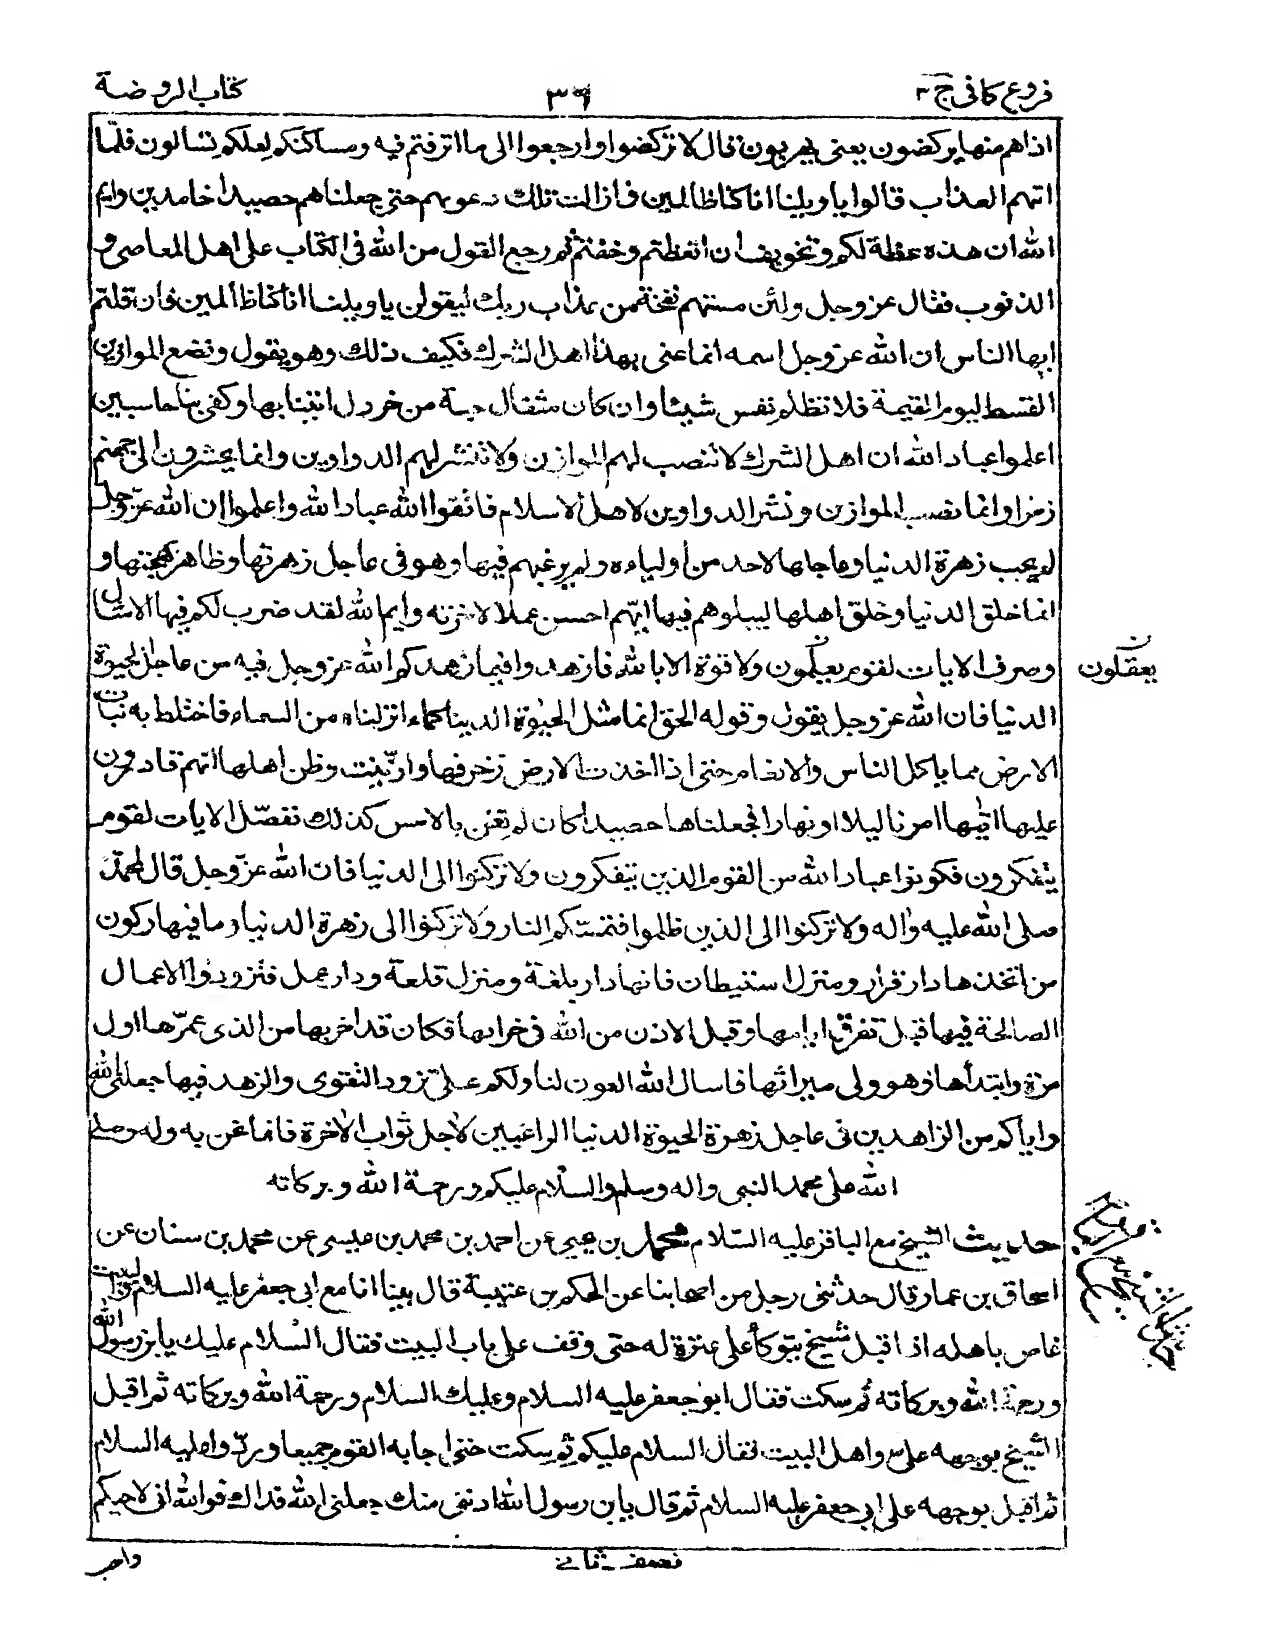 فروع كافى ج ٣
٣٩
كتاب الروضة
اذا هم منها يركضون يعنى يهربون قال لا تركضوا وارجعوا الى ما اترفتم فيه ومساكنكم لعلكم تسالون فلمّا
اتهم العذاب قالوا يا ويلنا انا كنا ظالمين فما زالت تلك دعويهم حتى جعلناهم حصيدا خامدين وايم
الله ان هذه عظة لكم وتخويف ان اتعظتم وخفتم ثم رجع القول من الله فى الكتاب على اهل المعاصى و
الذنوب فقال عز وجل ولئن مستهم نفحة من عذاب ربك ليقولن يا ويلنا انا كنا ظالمين فان قلتم
ايها الناس ان الله عز وجل اسمه انما عنى بهذا اهل الشرك فكيف ذلك وهو يقول ونضع الموازين
القسط ليوم القيمة فلا تظلم نفس شيئا وان كان مثقال حبة من خردل اتينا بها وكفى بنا حاسبين
اعلموا عباد الله ان اهل الشرك لا تنصب لهم الموازين ولا تنشر لهم الدواوين وانما يحشرون الى جهنم
زمرا وانما نصب الموازين ونشر الدواوين لاهل الاسلام فاتقوا الله عباد الله واعلموا ان الله عز وجل
لم يحب زهرة الدنيا وعاجلها لاحد من اولياءه ولم يرغبهم فيها وفى عاجل زهرتها وظاهر بهجتها و
انما خلق الدنيا وخلق اهلها ليبلوهم فيها ايهم احسن عملا لاخرته وايم الله لقد ضرب لكم فيها الامثال
وصرف الايات لقوم يعلمون ولا قوة الا بالله فازهدوا فيما زهدكم الله عز وجل فيه من عاجل الحيوة
يعقلون
الدنيا فان الله عز وجل يقول وقوله الحق انما مثل الحيوة الدنيا كماء انزلناه من السماء فاختلط به نبات
الارض مما ياكل الناس والانعام حتى اذا اخذت الارض زخرفها وازّينت وظن اهلها انهم قادرون
عليها اتيها امرنا ليلا او نهارا فجعلناها حصيدا كان لم تغن بالامس كذلك نفصّل الايات لقوم
يتفكرون فكونوا عباد الله من القوم الذين يتفكرون ولا تركنوا الى الدنيا فان الله عز وجل قال لمحمّد
صلى الله عليه واله ولا تركنوا الى الذين ظلموا فتمسّكم النار ولا تركنوا الى زهرة الدنيا وما فيها ركون
من اتخذها دار قرار ومنزل استيطان فانها دار بلغة ومنزل قلعة ودار عمل فتزودوا الاعمال
الصالحة فيها قبل تفرق ايامها وقبل الاذن من الله فى خرابها فكان قد اخربها من الذى عمرّها اول
مرة وابتدأها وهو ولى ميراثها فاسال الله العون لنا ولكم على تزود التقوى والزهد فيها جعلنى الله
واياكم من الزاهدين فى عاجل زهرة الحيوة الدنيا الراغبين لاجل ثواب الاخرة فانما نحن به وله وصلى
الله على محمد النبى واله وسلم والسلام عليكم ورحمة الله وبركاته
حديث الشيخ مع الباقر عليه السّلام محمد بن يحيى عن احمد بن محمد بن عيسى عن محمد بن سنان عن
اسحاق بن عمار قال حدثنى رجل من اصحابنا عن الحكم بن عتيبة قال بينا انا مع ابى جعفر عليه السلام والبيت
غاص باهله اذ اقبل شيخ يتوكأ على عنزة له حتى وقف على باب البيت فقال السلام عليك يا بن رسول الله
ورحمة الله وبركاته ثم سكت فقال ابو جعفر عليه السلام وعليك السلام ورحمة الله وبركاته ثم اقبل
الشيخ بوجهه على اهل البيت فقال السلام عليكم ثم سكت حتى اجابه القوم جميعا وردّوا عليه السلام
ثم اقبل بوجهه على ابى جعفر عليه السلام ثم قال يا بن رسول الله ادننى منك جعلنى الله فداك فوالله انى لاحبكم
نصف ثانى
واحب